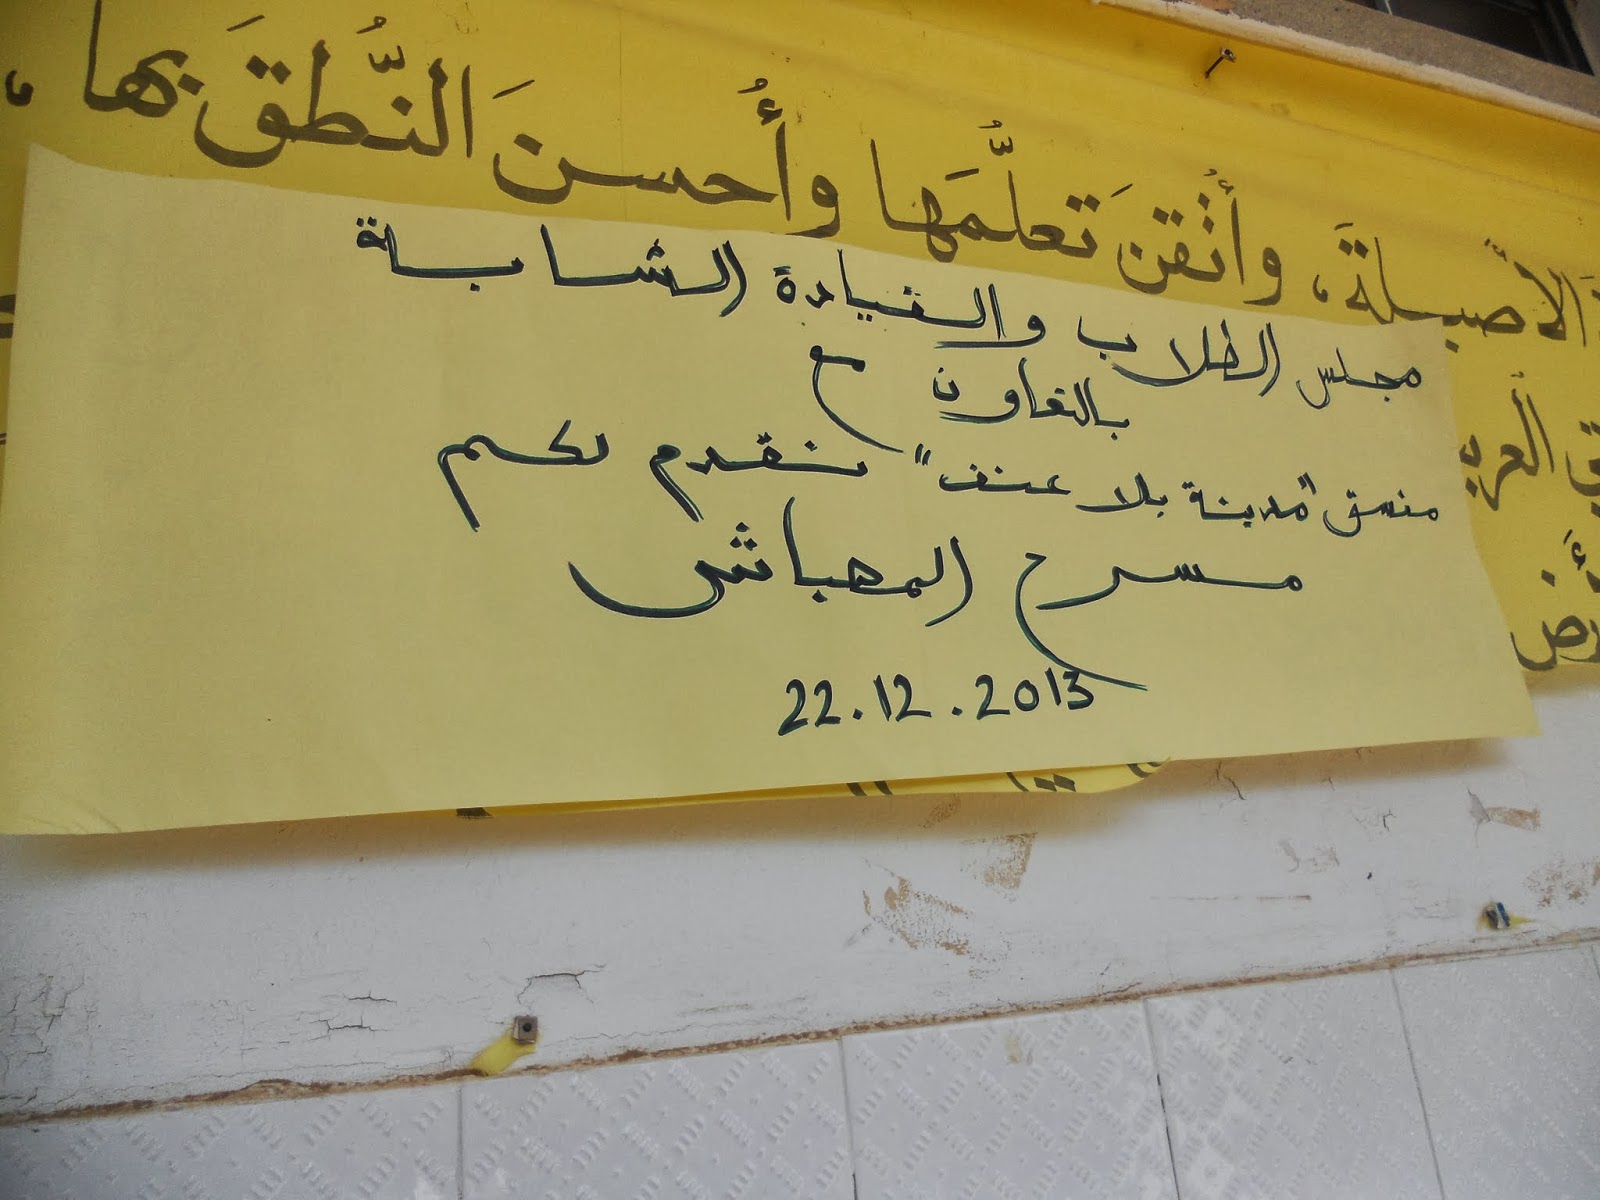 الأصيلةَ، وأتقنَ تعلُّمَها وأُحسنَ النُّطقَ بها،
مجلس الطلاب والقيادة الشابة
بالتعاون مع
منسق "مدينة بلا عنف" نقدم لكم
مسرح المهباش
22.12.2013